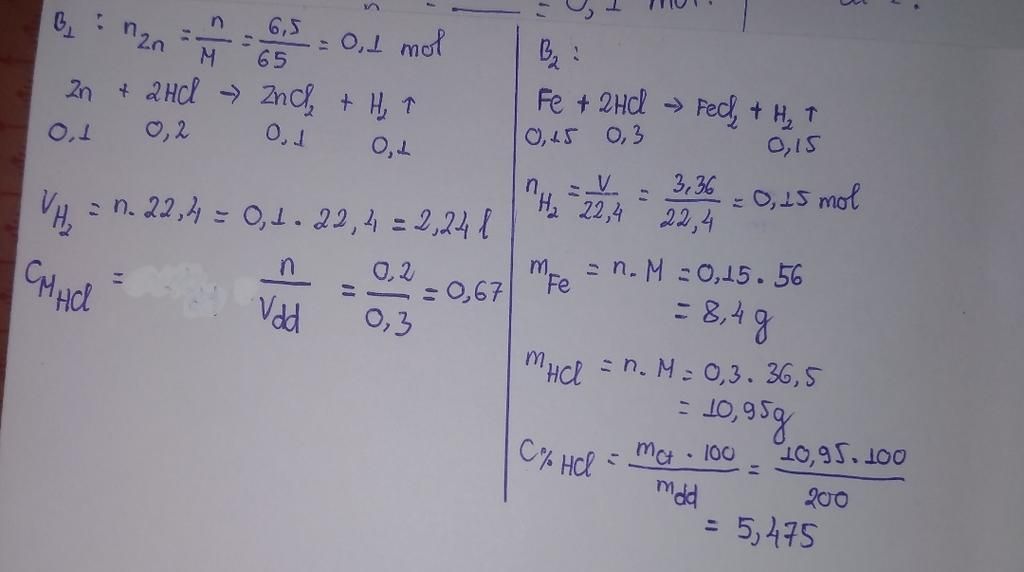 n = = 0,1 mol.
B₁ : n_Zn = n/M = 6,5/65 = 0,1 mol
Zn + 2HCl → ZnCl₂ + H₂ ↑
0,1 0,2 0,1 0,1
V_H₂ = n. 22,4 = 0,1. 22,4 = 2,24 l
C_M HCl = n/V_dd = 0,2/0,3 = 0,67
B₂ :
Fe + 2HCl → FeCl₂ + H₂ ↑
0,15 0,3 0,15
n_H₂ = V/22,4 = 3,36/22,4 = 0,15 mol
m_Fe = n. M = 0,15. 56
= 8,4 g
m_HCl = n. M = 0,3. 36,5
= 10,95g
C% HCl = m_ct . 100/m_dd = 10,95. 100/200
= 5,475